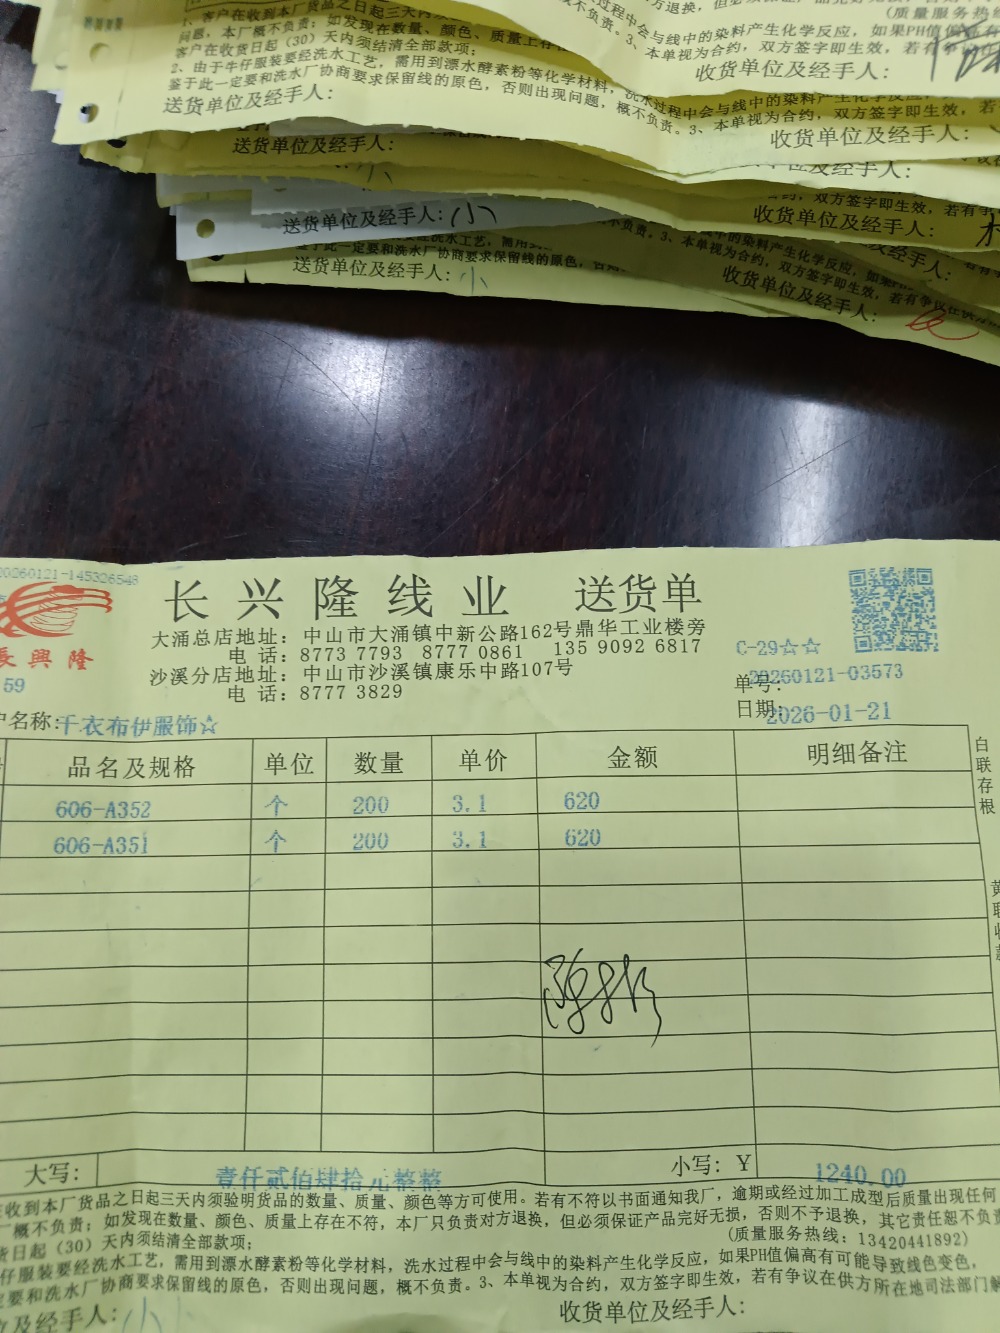 1、客户在收到本厂货品之日起三天内须
问题，本厂概不负责；如发现在数量、颜色、质量上存在
客户在收货日起（30）天内须结清全部款项；
2、由于牛仔服装要经洗水工艺，需用到漂水酵素粉等化学材料，洗水过程中会与线中的染料产生化学反应，
鉴于此一定要和洗水厂协商要求保留线的原色，否则出现问题，概不负责。3、本单视为合约，双方签字即生效，若有
送货单位及经手人：
收货单位及经手人：
过程中会与线中的染料产生化学反应，如果PH值偏
不负责。3、本单视为合约，双方签字即生效，若有争议在
(质量服务热
收货单位及经手人：
送货单位及经手人：
送货单位及经手人：小
收货单位及经手人：
送货单位及经手人：小
收货单位及经手人：
20260121-145326548
長興隆
59
长兴隆线业 送货单
大涌总店地址：中山市大涌镇中新公路162号鼎华工业楼旁
电 话：8773 7793 8777 0861 135 9092 6817
沙溪分店地址：中山市沙溪镇康乐中路107号
电 话：8777 3829
C-29☆☆
单号：20260121-03573
日期：2026-01-21
户名称：千衣布伊服饰☆
品名及规格 单位 数量 单价 金额 明细备注
606-A352 个 200 3.1 620
606-A351 个 200 3.1 620
白联存根
黄联收款
大写： 壹仟贰佰肆拾元整整 小写：￥ 1240.00
在收到本厂货品之日起三天内须验明货品的数量、质量、颜色等方可使用。若有不符以书面通知我厂，逾期或经过加工成型后质量出现任何
厂概不负责；如发现在数量、颜色、质量上存在不符，本厂只负责对方退换，但必须保证产品完好无损，否则不予退换，其它责任恕不负责
货日起（30）天内须结清全部款项；
(质量服务热线：13420441892)
仔服装要经洗水工艺，需用到漂水酵素粉等化学材料，洗水过程中会与线中的染料产生化学反应，如果PH值偏高有可能导致线色变色，
定要和洗水厂协商要求保留线的原色，否则出现问题，概不负责。3、本单视为合约，双方签字即生效，若有争议在供方所在地司法部门解
位及经手人：小
收货单位及经手人：